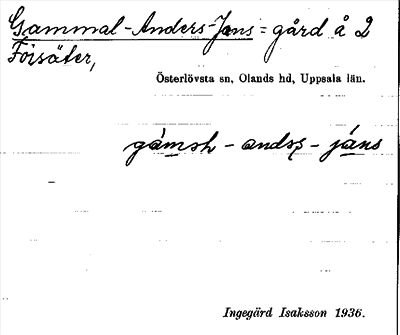 Gammal-Anders-Jans = gård å 2
Försäter,
Österlövsta sn, Olands hd, Uppsala län.
gàmsh - andsz - jáns
Ingegärd Isaksson 1936.